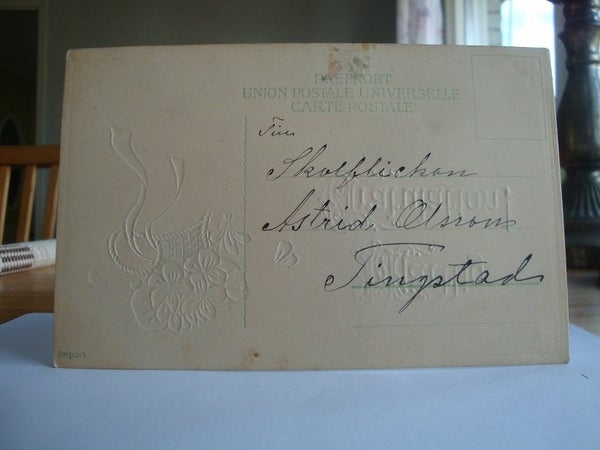 BREFKORT
UNION POSTALE UNIVERSELLE
CARTE POSTALE
Skolflickan
Astrid Olsson
Tingstad
Import